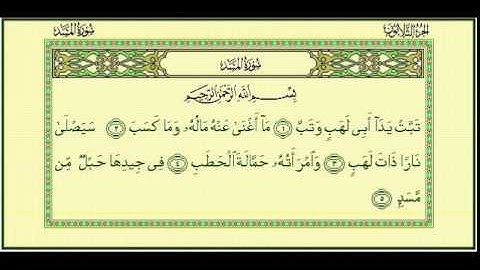 الجزء الثلاثون سورة المسد
سورة المسد
بِسْمِ اللَّهِ الرَّحْمَٰنِ الرَّحِيمِ
تَبَّتْ يَدَآ أَبِى لَهَبٍ وَتَبَّ ١ مَآ أَغْنَىٰ عَنْهُ مَالُهُۥ وَمَا كَسَبَ ٢ سَيَصْلَىٰ
نَارًا ذَاتَ لَهَبٍ ٣ وَٱمْرَأَتُهُۥ حَمَّالَةَ ٱلْحَطَبِ ٤ فِى جِيدِهَا حَبْلٌ مِّن
مَّسَدٍۭ ٥